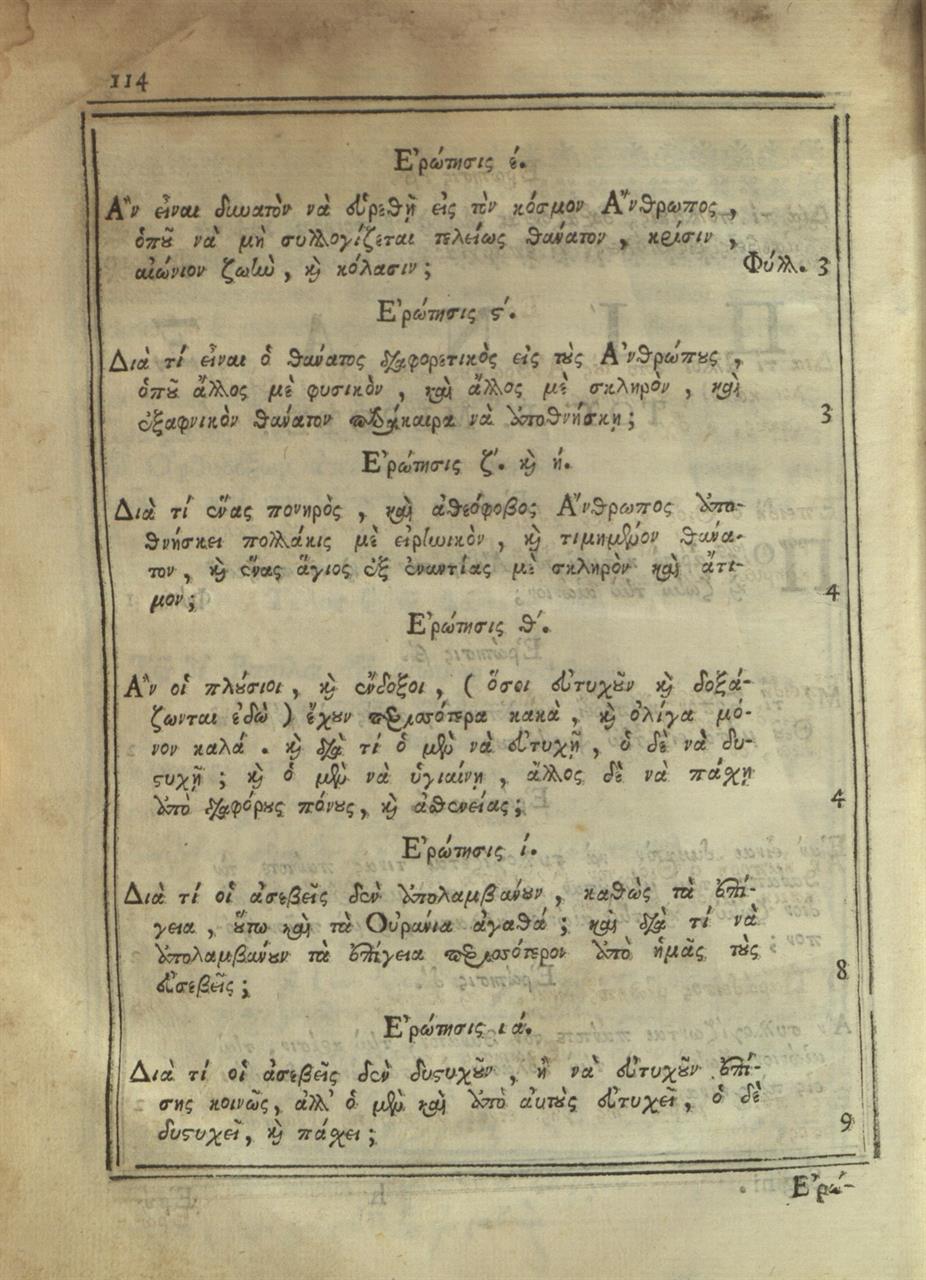 114
Ἐρώτησις έ.
Ἂν εἶναι δυνατὸν νὰ εὑρεθῇ εἰς τὸν κόσμον Ἄνθρωπος,
ὁποῦ νὰ μὴ συλλογίζεται τελείως θάνατον, κρίσιν,
αἰώνιον ζωὴν, καὶ κόλασιν; Φύλλ. 3
Ἐρώτησις ϛ΄.
Διὰ τί εἶναι ὁ θάνατος διαφορετικὸς εἰς τοὺς Ἀνθρώπους,
ὁποῦ ἄλλος μὲ φυσικὸν, καὶ ἄλλος μὲ σκληρὸν, καὶ
ἐξαφνικὸν θάνατον παράκαιρα νὰ ἀποθνήσκῃ; 3
Ἐρώτησις ζ΄. καὶ ή.
Διὰ τί ἕνας πονηρὸς, καὶ ἀθεόφοβος Ἄνθρωπος ἀπο-
θνήσκει πολλάκις μὲ εἰρηνικὸν, καὶ τιμημένον θάνα-
τον, καὶ ἕνας ἅγιος ἐξ ἐναντίας μὲ σκληρὸν καὶ ἄτι-
μον; 4
Ἐρώτησις θ΄.
Ἂν οἱ πλούσιοι, καὶ ἔνδοξοι, (ὅσοι εὐτυχοῦν καὶ δοξά-
ζωνται ἐδὼ) ἔχουν περισσότερα κακὰ, καὶ ὀλίγα μό-
νον καλά. καὶ διὰ τί ὁ μὲν νὰ εὐτυχῇ, ὁ δὲ νὰ δυ-
στυχῇ; καὶ ὁ μὲν νὰ ὑγιαίνῃ, ἄλλος δὲ νὰ πάσχῃ
ἀπὸ διαφόρους πόνους, καὶ ἀσθενείας; 4
Ἐρώτησις ί.
Διὰ τί οἱ ἀσεβεῖς δὲν ἀπολαμβανόυν, καθὼς τὰ ἐπί-
γεια, οὕτω καὶ τὰ Οὐράνια ἀγαθά; καὶ διὰ τί νὰ
ἀπολαμβανόυν τὰ ἐπίγεια περισσότερον ἀπὸ ἡμᾶς τοὺς
εὐσεβεῖς; 8
Ἐρώτησις ιά.
Διὰ τί οἱ ἀσεβεῖς δὲν δυστυχοῦν, ἢ νὰ εὐτυχοῦν ἐπί-
σης κοινῶς, ἀλλ' ὁ μὲν καὶ ἀπὸ ἀυτοὺς εὐτυχεῖ, ὁ δὲ
δυστυχεῖ, καὶ πάσχει; 9
Ἐρώ-